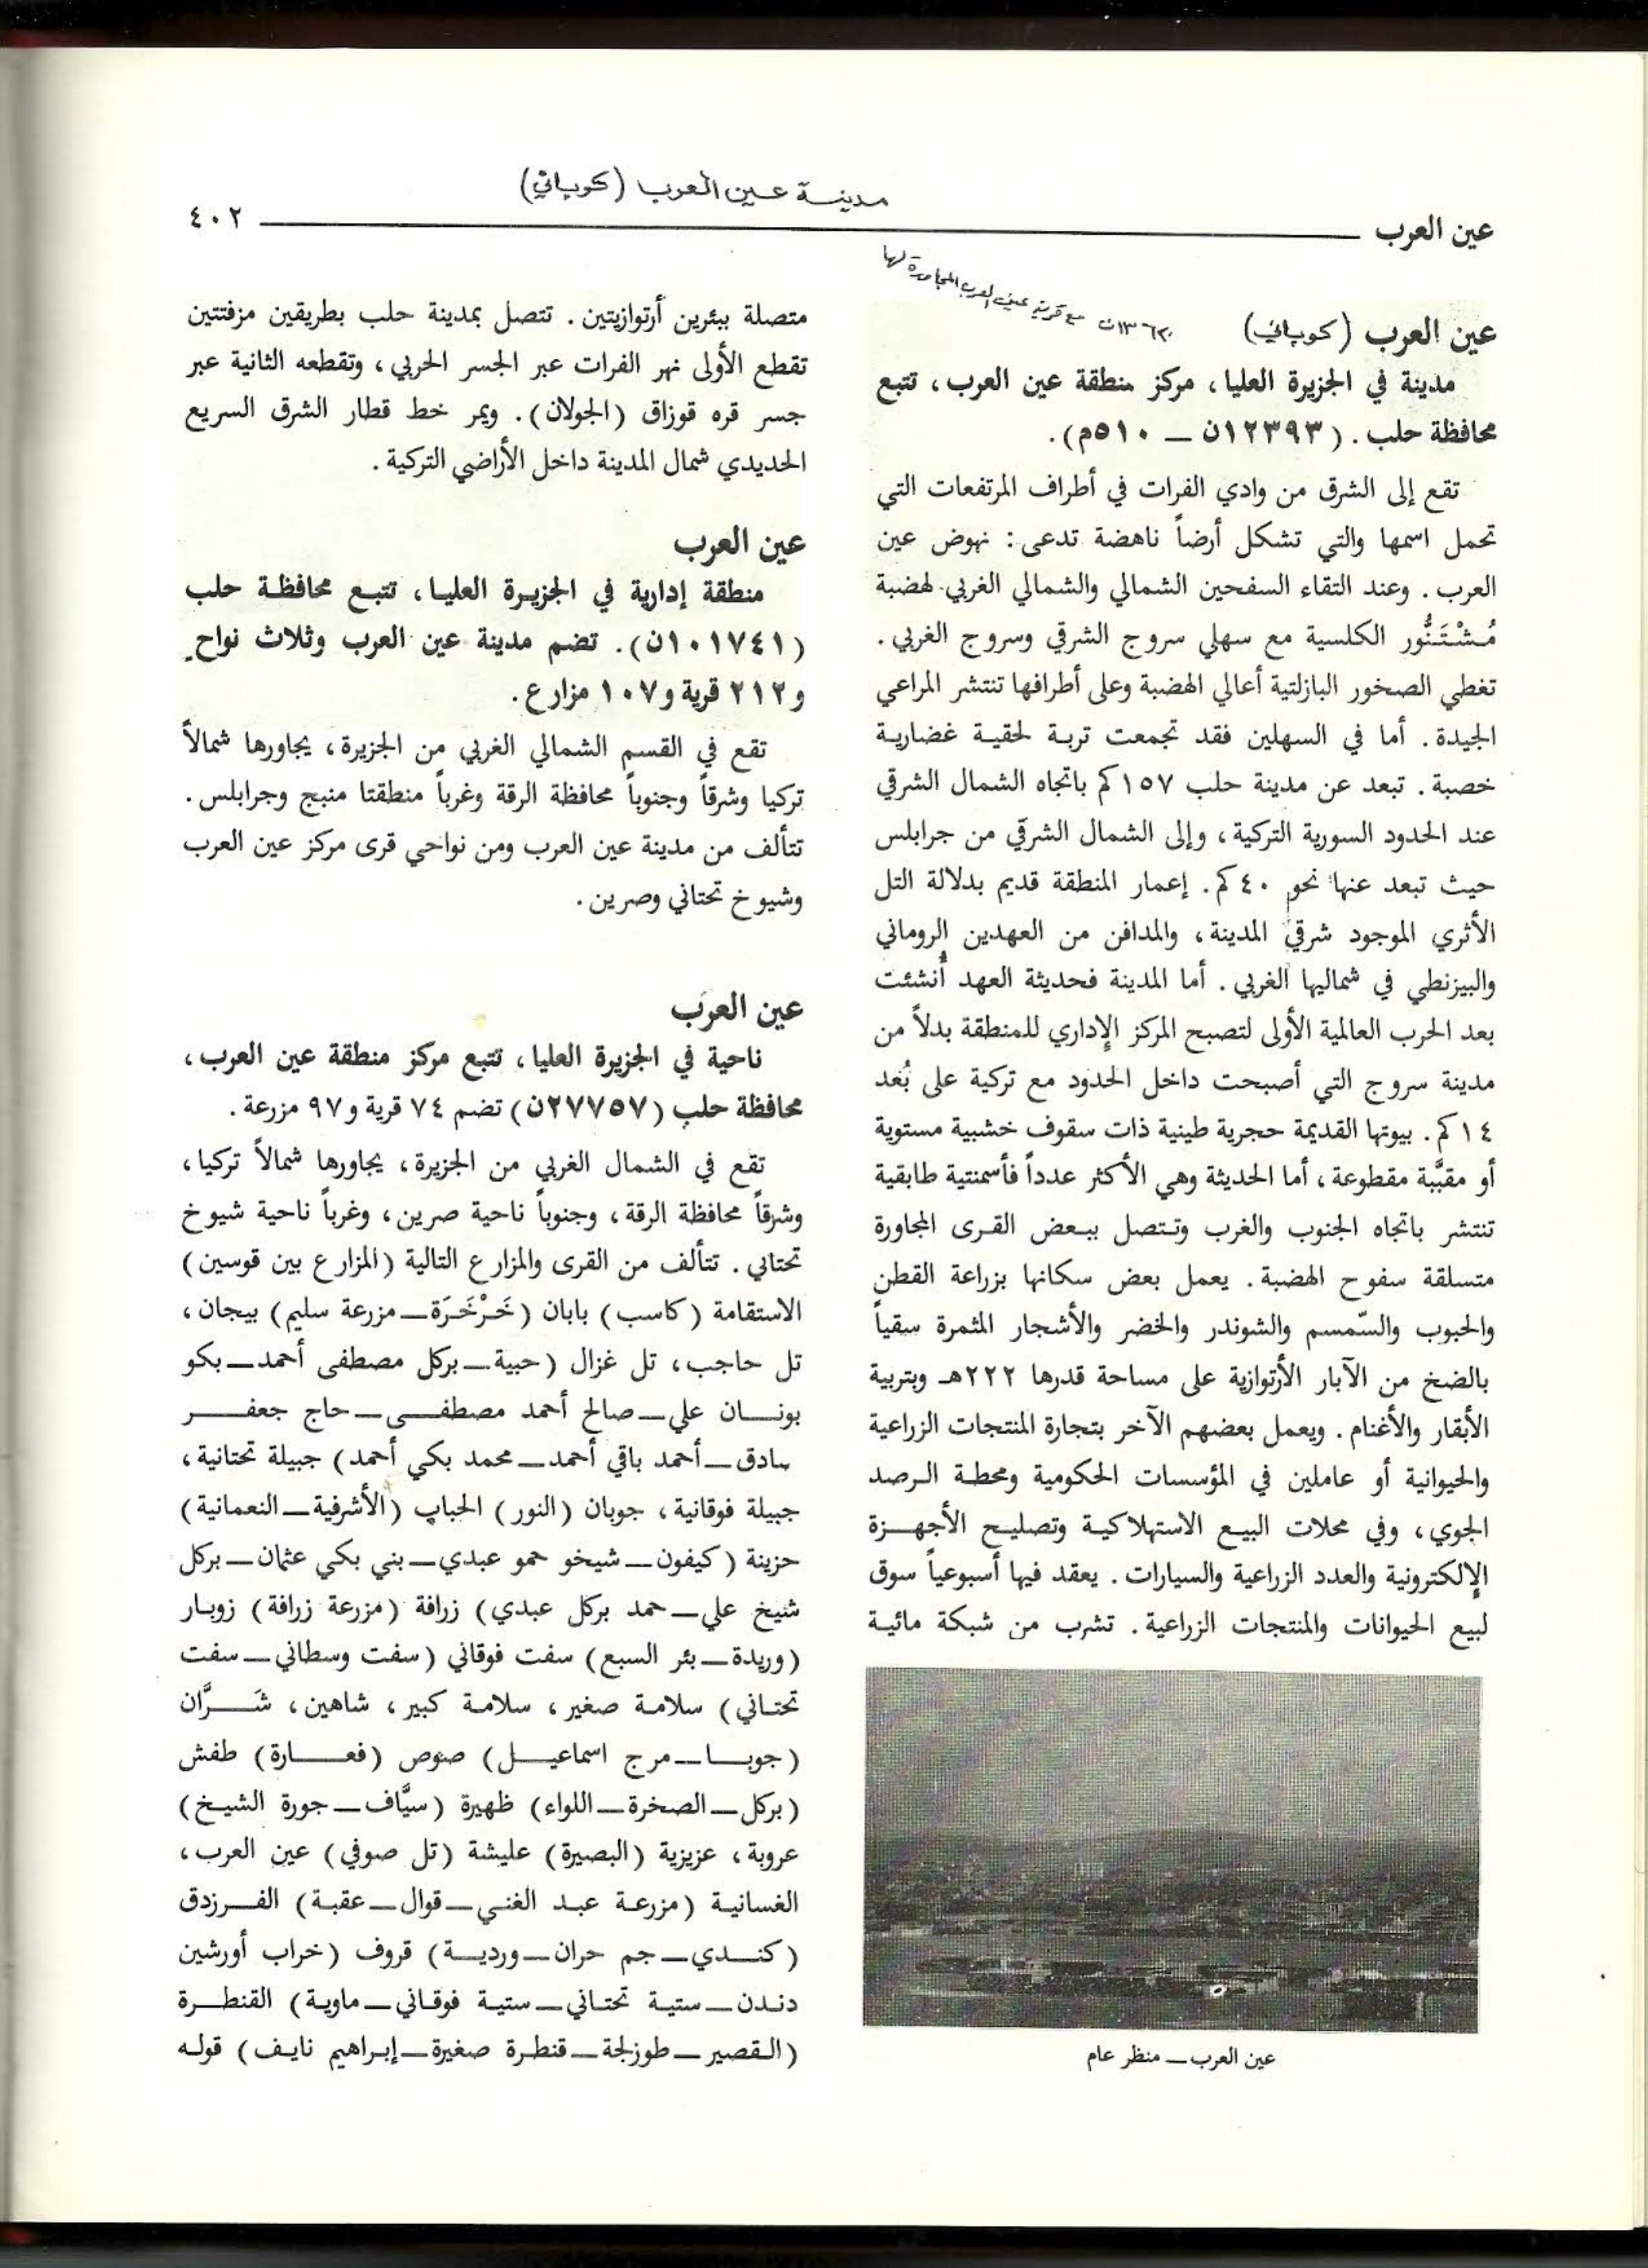 مدينة عين العرب (كوباني)
عين العرب
٤٠٢
عين العرب (كوباني)
١٣٦٢٠ن مع قرية عين العرب المجاورة لها
مدينة في الجزيرة العليا، مركز منطقة عين العرب، تتبع
محافظة حلب. (١٢٣٩٣ن — ٥١٠م).
تقع إلى الشرق من وادي الفرات في أطراف المرتفعات التي
تحمل اسمها والتي تشكل أرضاً ناهضة تدعى: نهوض عين
العرب. وعند التقاء السفحين الشمالي والشمالي الغربي لهضبة
مُشْتَنُّور الكلسية مع سهلي سروج الشرقي وسروج الغربي.
تغطي الصخور البازلتية أعالي الهضبة وعلى أطرافها تنتشر المراعي
الجيدة. أما في السهلين فقد تجمعت تربة لحقية غضارية
خصبة. تبعد عن مدينة حلب ١٥٧كم باتجاه الشمال الشرقي
عند الحدود السورية التركية، وإلى الشمال الشرقي من جرابلس
حيث تبعد عنها نحو ٤٠كم. إعمار المنطقة قديم بدلالة التل
الأثري الموجود شرقي المدينة، والمدافن من العهدين الروماني
والبيزنطي في شماليها الغربي. أما المدينة فحديثة العهد أنشئت
بعد الحرب العالمية الأولى لتصبح المركز الإداري للمنطقة بدلاً من
مدينة سروج التي أصبحت داخل الحدود مع تركية على بُعد
١٤كم. بيوتها القديمة حجرية طينية ذات سقوف خشبية مستوية
أو مقبَّبة مقطوعة، أما الحديثة وهي الأكثر عدداً فأسمنتية طابقية
تنتشر باتجاه الجنوب والغرب وتتصل ببعض القرى المجاورة
متسلقة سفوح الهضبة. يعمل بعض سكانها بزراعة القطن
والحبوب والسّمسم والشوندر والخضر والأشجار المثمرة سقياً
بالضخ من الآبار الأرتوازية على مساحة قدرها ٢٢٢هـ وبتربية
الأبقار والأغنام. ويعمل بعضهم الآخر بتجارة المنتجات الزراعية
والحيوانية أو عاملين في المؤسسات الحكومية ومحطة الرصد
الجوي، وفي محلات البيع الاستهلاكية وتصليح الأجهزة
الإلكترونية والعدد الزراعية والسيارات. يعقد فيها أسبوعياً سوق
لبيع الحيوانات والمنتجات الزراعية. تشرب من شبكة مائية
عين العرب — منظر عام
متصلة ببئرين أرتوازيتين. تتصل بمدينة حلب بطريقين مزفتتين
تقطع الأولى نهر الفرات عبر الجسر الحربي، وتقطعه الثانية عبر
جسر قره قوزاق (الجولان). ويمر خط قطار الشرق السريع
الحديدي شمال المدينة داخل الأراضي التركية.
عين العرب
منطقة إدارية في الجزيرة العليا، تتبع محافظة حلب
(١٠١٧٤١ن). تضم مدينة عين العرب وثلاث نواحٍ
و٢١٢ قرية و١٠٧ مزارع.
تقع في القسم الشمالي الغربي من الجزيرة، يجاورها شمالاً
تركيا وشرقاً وجنوباً محافظة الرقة وغرباً منطقتا منبج وجرابلس.
تتألف من مدينة عين العرب ومن نواحي قرى مركز عين العرب
وشيوخ تحتاني وصرين.
عين العرب
ناحية في الجزيرة العليا، تتبع مركز منطقة عين العرب،
محافظة حلب (٢٧٧٥٧ن) تضم ٧٤ قرية و٩٧ مزرعة.
تقع في الشمال الغربي من الجزيرة، يجاورها شمالاً تركيا،
وشرقاً محافظة الرقة، وجنوباً ناحية صرين، وغرباً ناحية شيوخ
تحتاني. تتألف من القرى والمزارع التالية (المزارع بين قوسين)
الاستقامة (كاسب) بابان (خَرْخَرَة — مزرعة سليم) بيجان،
تل حاجب، تل غزال (حبية — بركل مصطفى أحمد — بكو
بونان علي — صالح أحمد مصطفى — حاج جعفر
صادق — أحمد باقي أحمد — محمد بكي أحمد) جبيلة تحتانية،
جبيلة فوقانية، جوبان (النور) الحباب (الأشرفية — النعمانية)
حزينة (كيفون — شيخو حمو عبدي — بني بكي عثمان — بركل
شيخ علي — حمد بركل عبدي) زرافة (مزرعة زرافة) زوبار
(وريدة — بئر السبع) سفت فوقاني (سفت وسطاني — سفت
تحتاني) سلامة صغير، سلامة كبير، شاهين، شَرَّان
(جوبا — مرج اسماعيل) صوص (فعارة) طفش
(بركل — الصخرة — اللواء) ظهيرة (سيَّاف — جورة الشيخ)
عروبة، عزيزية (البصيرة) عليشة (تل صوفي) عين العرب،
الغسانية (مزرعة عبد الغني — قوال — عقبة) الفرزدق
(كندي — جم حران — وردية) قروف (خراب أورشين
دندن — ستية تحتاني — ستية فوقاني — ماوية) القنطرة
(القصير — طوزلجة — قنطرة صغيرة — إبراهيم نايف) قوله